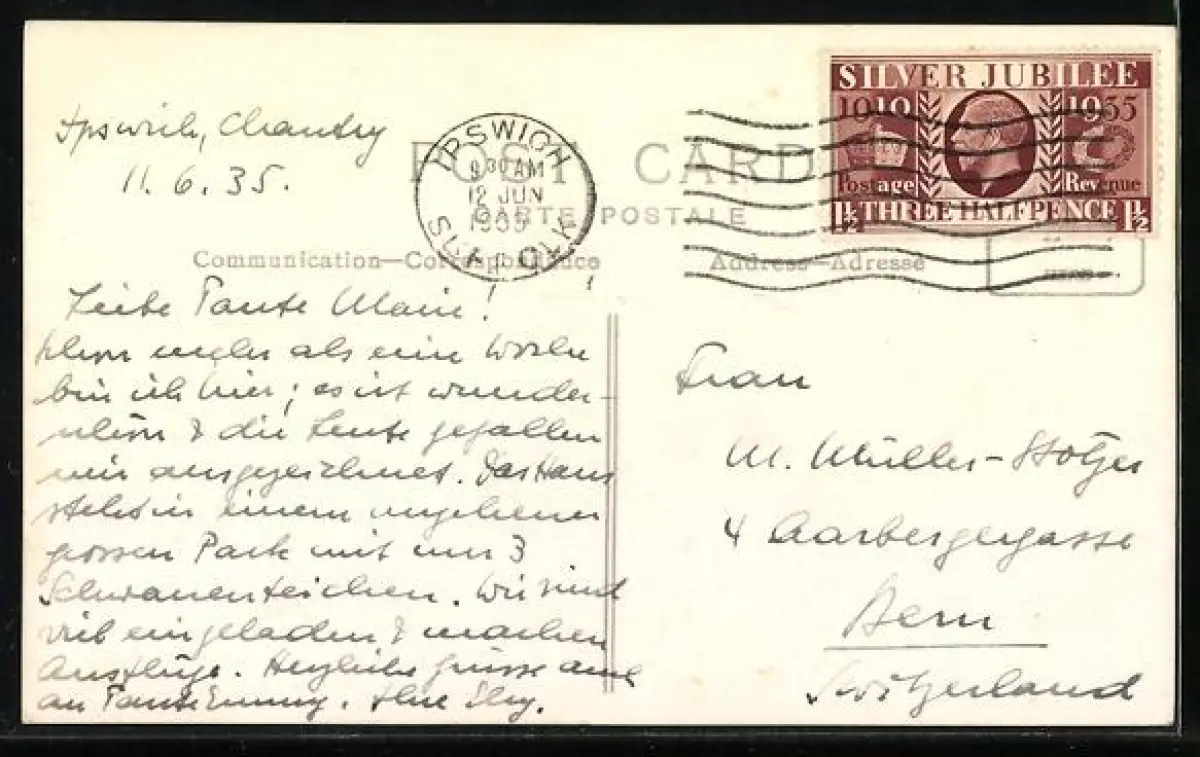 Ipswich, Chantry
11. 6. 35.
IPSWICH
9 30 AM
12 JUN
1935
SUFFOLK
POST CARD
CARTE POSTALE
Communication—Correspondance
Address—Adresse
SILVER JUBILEE
1910 1935
Postage Revenue
1½ THREE HALFPENCE 1½
Liebe Tante Marie!
schon mehr als eine Woche
bin ich hier; es ist wunder-
schön & die Leute gefallen
mir ausgezeichnet. Das Haus
steht in einem ungeheuer
grossen Park mit nur 3
Schwanenteichen. Wir sind
viel eingeladen & machen
Ausflüge. Herzliche Grüsse auch
an Tante Emmy.
Frau
M. Müller-Stotzer
4 Aarbergergasse
Bern
Switzerland